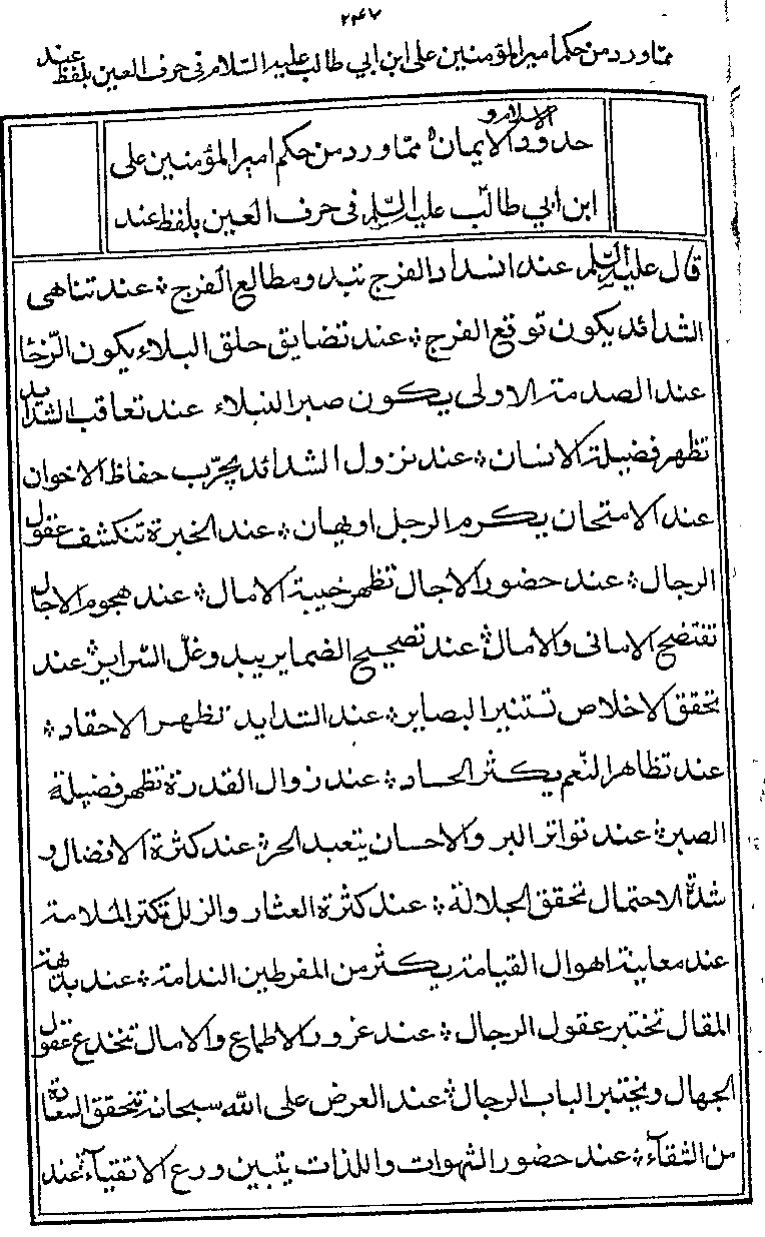 ۲۴۷
ممّا ورد من حكم امير المؤمنين على ابن ابي طالب عليه السّلام في حرف العين بلفظ عند
حدود الاسلام و الايمان ممّا ورد من حكم امير المؤمنين على
ابن ابي طالب عليه السّلم في حرف العين بلفظ عند
قال عليه السّلم عند انسداد الفرج تبدو مطالع الفرج ؞ عند تناهى
الشدائد يكون توقع الفرج ؞ عند تضايق حلق البلاء يكون الرّخا
عند الصدمة الاولى يكون صبر النبلاء عند تعاقب الشدايد
تظهر فضيلة الانسان ؞ عند نزول الشدائد يجرّب حفاظ الاخوان
عند الامتحان يكرم الرجل او يهان ؞ عند الخبرة تنكشف عقول
الرجال ؞ عند حضور الاجال تظهر خيبة الامال ؞ عند هجوم الاجال
تفتضح الامانى والامال ؞ عند تصحيح الضماير يبدو غلّ السّراير ؞ عند
تحقق الاخلاص تستنير البصاير ؞ عند الشدايد تظهر الاحقاد ؞
عند تظاهر النّعم يكثر الحساد ؞ عند زوال القدرة تظهر فضيلة
الصبر ؞ عند تواتر البر والاحسان يتعبد الحر ؞ عند كثرة الافضال و
شدة الاحتمال تحقق الجلالة ؞ عند كثرة العثار والزلل تكثر الملامة
عند معاينة اهوال القيامة يكثر من المفرطين الندامة ؞ عند بديهة
المقال تختبر عقول الرجال ؞ عند غرور الاطماع والامال تنخدع عقول
الجهال ويختبر الباب الرجال ؞ عند العرض على الله سبحانه تتحقق السعادة
من الشقآء ؞ عند حضور الشهوات واللذات يتبين ورع الاتقيآء ؞ عند